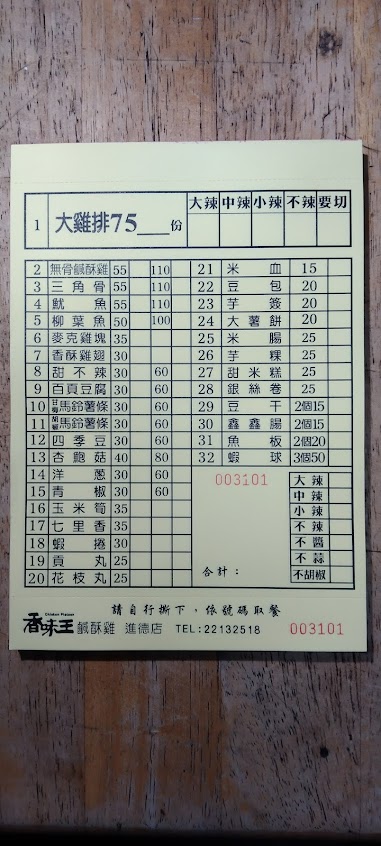 大辣 中辣 小辣 不辣 要切
1 大雞排75___份
2 無骨鹹酥雞 55 110
3 三角骨 55 110
4 魷魚 55 110
5 柳葉魚 50 100
6 麥克雞塊 35
7 香酥雞翅 30
8 甜不辣 30 60
9 百頁豆腐 30 60
10 甘梅 馬鈴薯條 30 60
11 馬鈴薯條 30 60
12 四季豆 30 60
13 杏鮑菇 40 80
14 洋蔥 30 60
15 青椒 30 60
16 玉米筍 35
17 七里香 35
18 蝦捲 30
19 貢丸 25
20 花枝丸 25
21 米血 15
22 豆包 20
23 芋簽 20
24 大薯餅 20
25 米腸 25
26 芋粿 25
27 甜米糕 25
28 銀絲卷 25
29 豆干 2個15
30 鑫鑫腸 2個15
31 魚板 2個20
32 蝦球 3個50
003101
合計：
大辣
中辣
小辣
不辣
不醬
不蒜
不胡椒
請自行撕下，依號碼取餐
香味王 鹹酥雞 進德店 TEL:22132518 003101